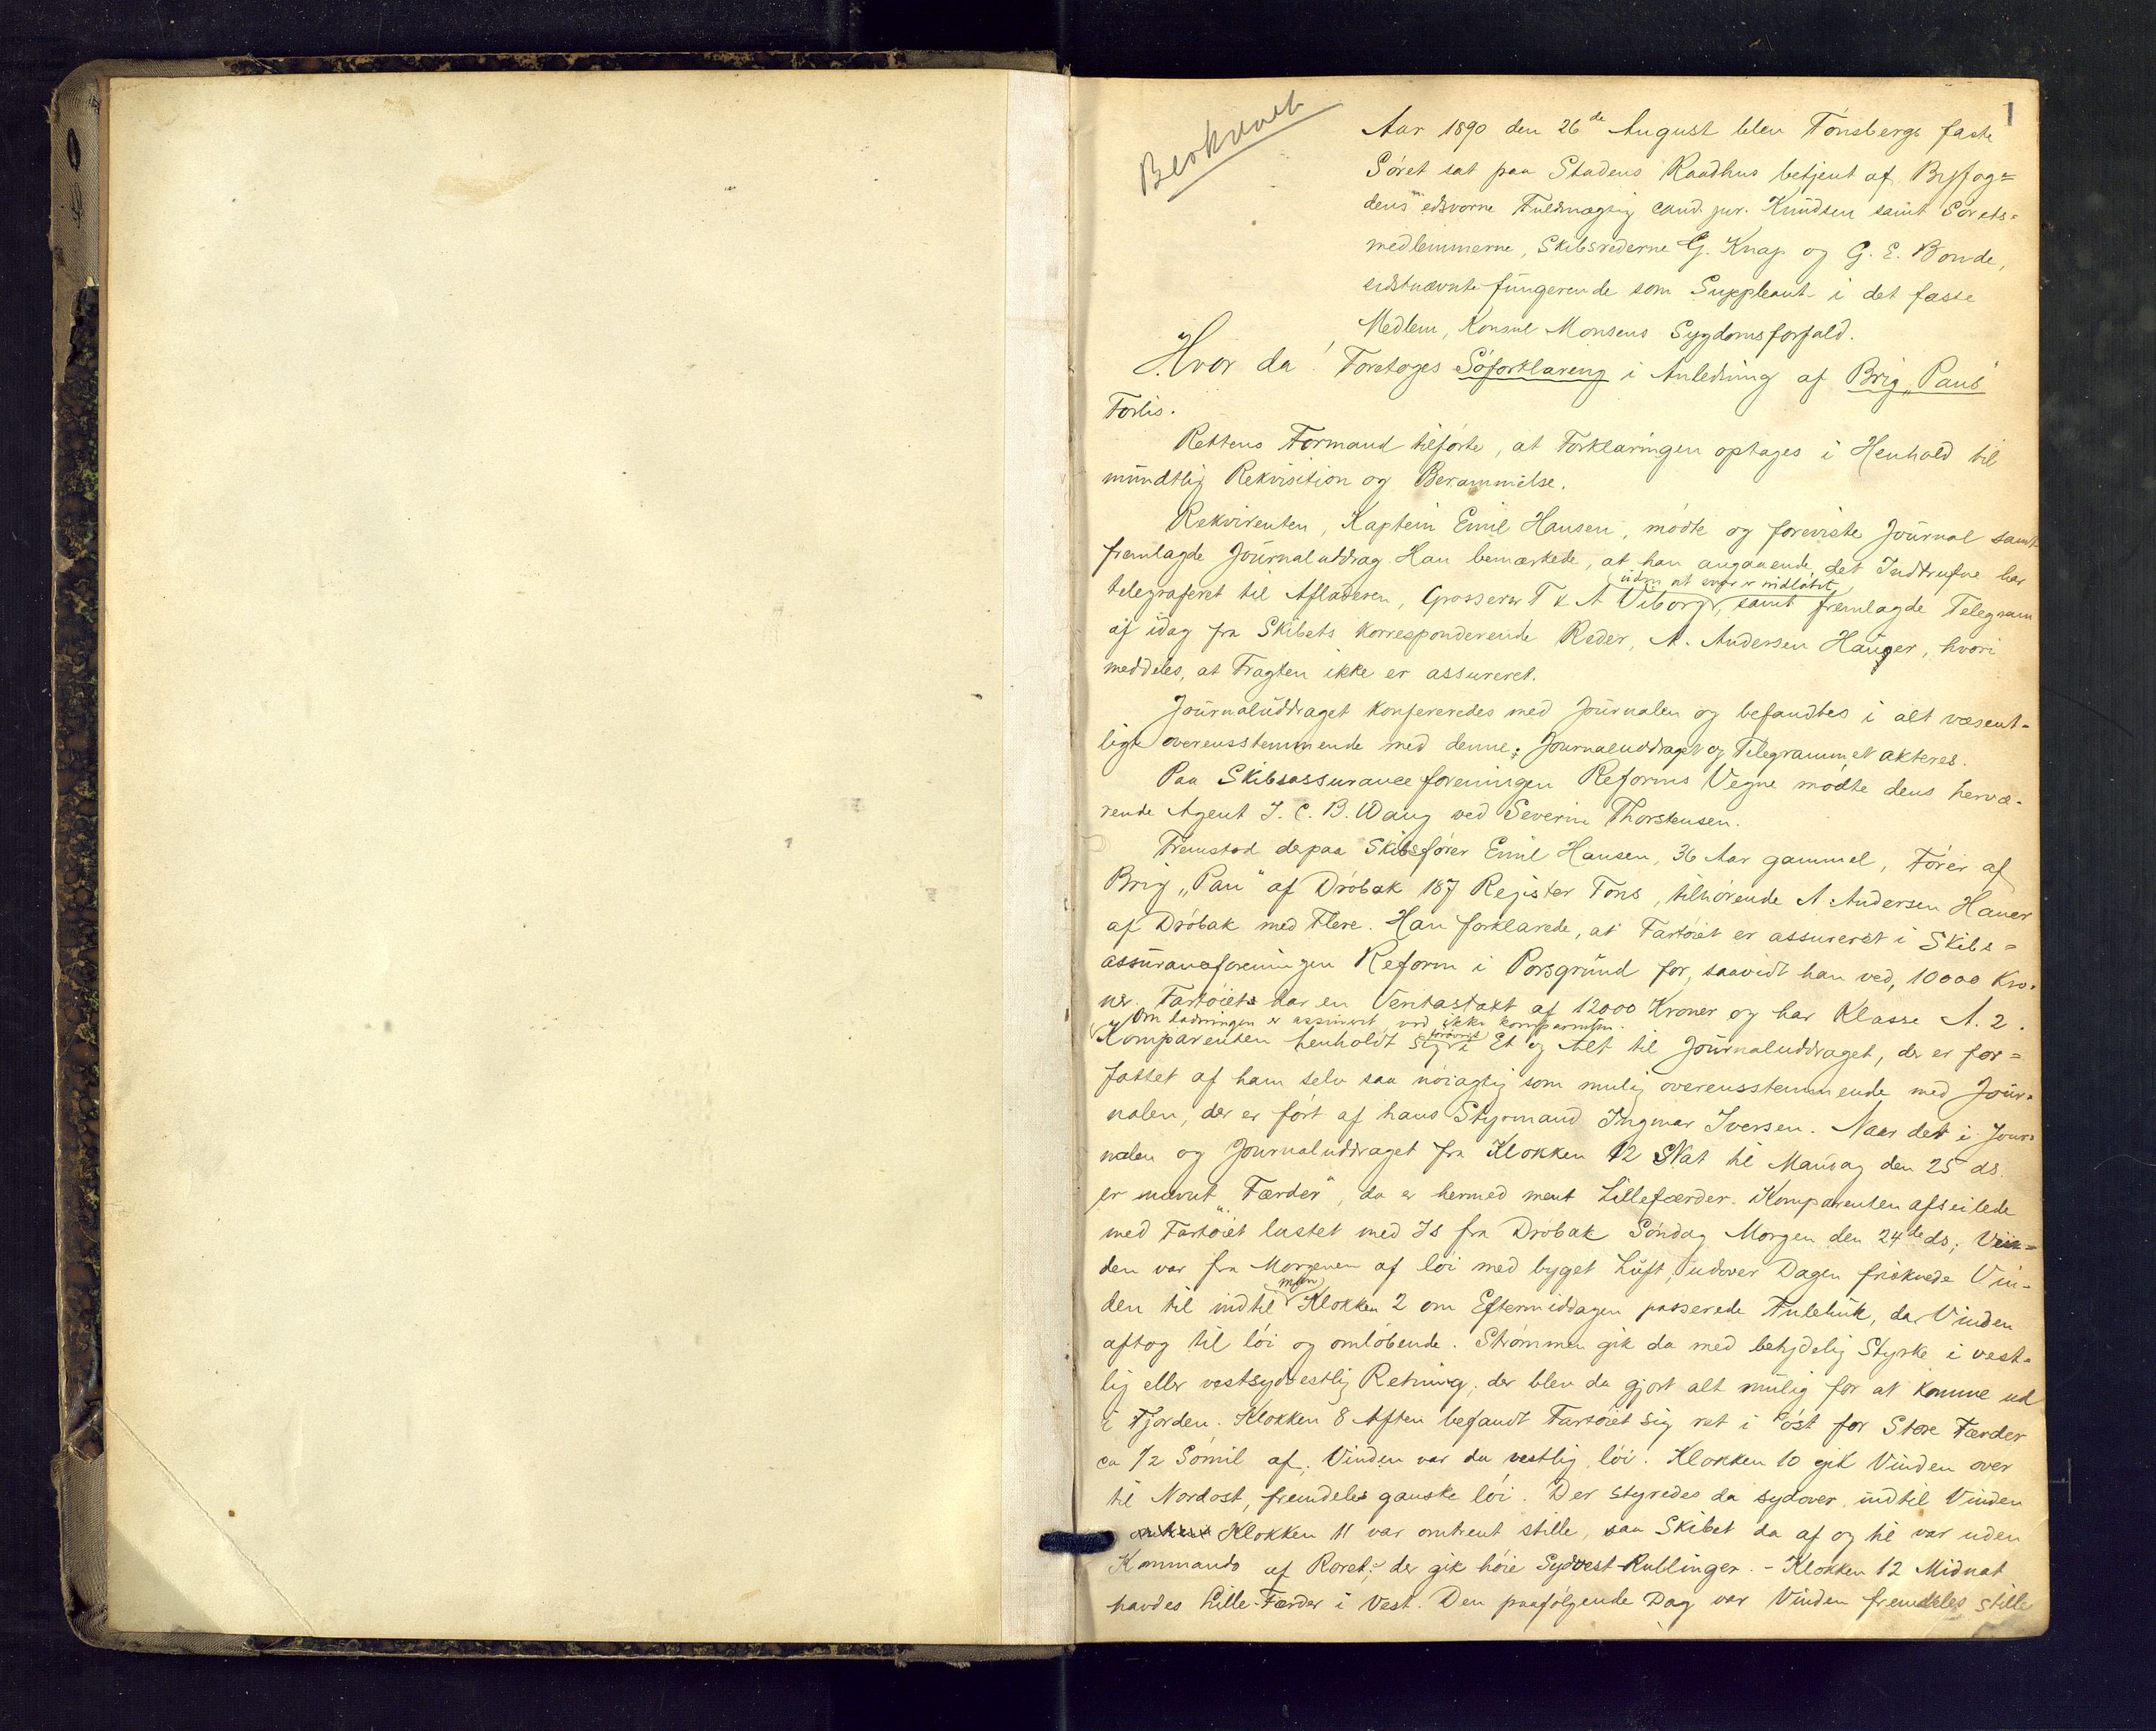 1
Beskrevet
Aar 1890 den 26de August blev Tønsbergs faste
Søret sat paa Stadens Raadhus betjent af Byfog=
dens edsvorne Fuldmægtig cand. jur. Knudsen samt Sørets=
medlemmerne, Skibsrederne G. Knap og G. E. Bonde,
sidstnævnte fungerende som Suppleant i det faste
Medlem, Konsul Monsens Sygdomsforfald.
Hvor da! Foretoges Søforklaring i Anledning af Brig „Pans"
Forlis.
Rettens Formand tilførte, at Forklaringen optages i Henhold til
mundtlig Rekvisition og Berammelse.
Rekvirenten, Kaptein Emil Hansen, mødte og foreviste Journal samt
fremlagde Journaluddrag. Han bemærkede, at han angaaende det Indtrufne har
uden at svar er indløbet
telegraferet til Afladeren, Grosserer T & A Viborg, samt fremlagde Telegram
af idag fra Skibets korresponderende Reder, A. Andersen Hauger, hvori
meddeles, at Fragten ikke er assureret.
Journaluddraget konfereredes med Journalen og befandtes i alt væsent=
ligt overensstemmende med denne; Journaluddraget og Telegrammet akteres.
Paa Skibsassuranceforeningen Reforms Vegne mødte dens hervæ=
rende Agent J. C. B. Wang ved Severin Thorstensen.
Fremstod derpaa Skibsfører Emil Hansen, 36 Aar gammel, Fører af
Brig „Pan" af Drøbak 187 Register Tons, tilhørende A. Andersen Hauer
af Drøbak med Flere. Han forklarede, at Fartøiet er assureret i Skibs=
assuranceforeningen Reform i Porsgrund for, saavidt han ved, 10000 Kro=
ner. Fartøiets har en Veritastakt af 12000 Kroner og har Klasse A. 2.
Om ladningen er assureret, ved ikke komparenten.
Komparenten henholdt sig i Et og Alt til Journaluddraget, der er for=
fattet af ham selv saa nøiagtig som mulig overensstemmende med Jour=
nalen, der er ført af hans Styrmand Ingmar Iversen. Naar det i Jour=
nalen og Journaluddraget fra Klokken 12 Nat til Mandag den 25 ds.
er nævnt „Færder", da er hermed ment Lillefærder. Komparenten afseilede
med Fartøiet lastet med Is fra Drøbak Søndag Morgen den 24de ds; Vin=
den var fra Morgenen af løi med byget Luft, udover Dagen frisknede Vin=
man
den til indtil Klokken 2 om Eftermiddagen passerede Fulehuk, da Vinden
aftog til løi og omløbende. Strømmen gik da med betydelig Styrke i vest=
lig eller vestsydvestlig Retning; der blev da gjort alt mulig for at komme ud
i Fjorden. Klokken 8 Aften befandt Fartøiet sig ret i øst for Store Færder
ca 1/2 Sømil af; Vinden var da vestlig, løi. Klokken 10 gik Vinden over
til Nordost, fremdeles ganske løi. Der styredes da sydover, indtil Vinden
Klokken 11 var omtrent stille, saa Skibet da af og til var uden
Kommando af Roret; der gik høie Sydvest-Rullinger. - Klokken 12 Midnat
havdes Lille-Færder i Vest. Den paafølgende Dag var Vinden fremdeles stille